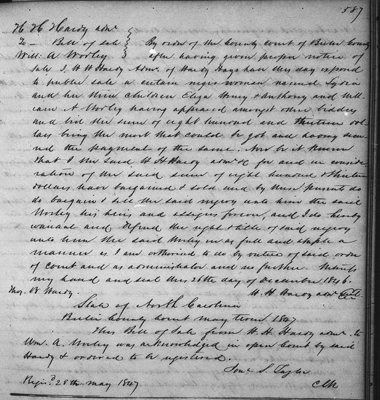 587
H H Hardy admr.
To - Bill of Sale By order of the County Court of Bertie County
Will. A Worley after having given proper notice of
sale I H H Hardy Admr. of Hardy this day exposed
to public sale a certain negro woman named
and her three children Eliza Henry & Anthony and Will
iam A Worley having appeared amongst other bidders
and bid the sum of eight hundred and thirteen dol
lars being the most that could be got and having secu
red the payment of the same. Now be it known
that I the said H H Hardy admr for and in conside
ration of the said sum of eight hundred & thirteen
dollars have bargained & sold and by these presents do
do bargain & sell the said negroes unto him the said
Worley his heirs and assigns forever, and I do hereby
warrant and defend the right & title of said negroes
unto him the said Worley in as full and ample a
manner as I am authorized to do by virtue of said order
of Court and as administrator and no further. Witness
my hand and seal this 26th day of December 1846.
Thos. B Hardy H. H Hardy admr
State of North Carolina
Bertie County Court May Term 1847
This Bill of Sale from H. H. Hardy admr. to
Wm. A. Worley was acknowledged in open Court by said
Hardy & ordered to be registered.
S Taylor
Regisd. 28th May 1847 Clk